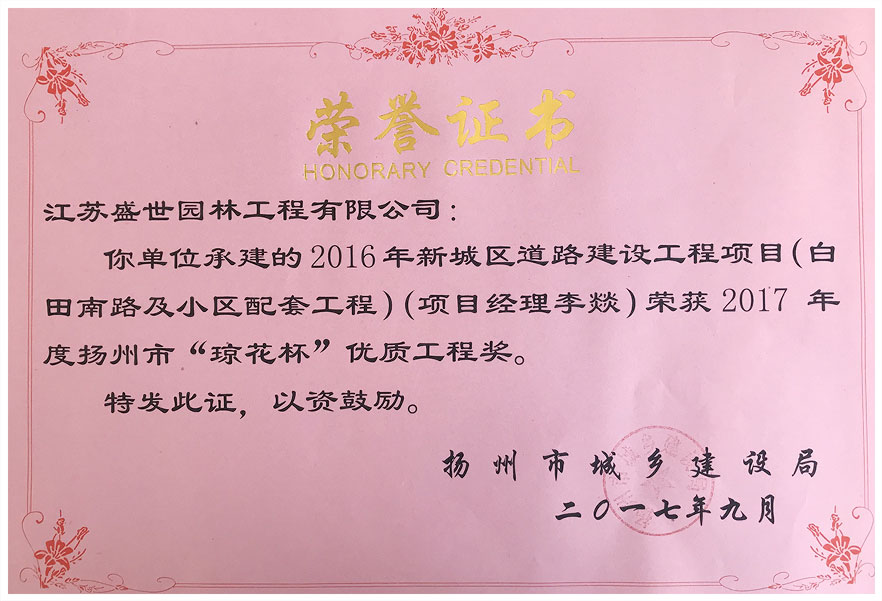 荣誉证书
HONORARY CREDENTIAL
江苏盛世园林工程有限公司：
你单位承建的2016年新城区道路建设工程项目（白
田南路及小区配套工程）（项目经理李燚）荣获2017 年
度扬州市“琼花杯”优质工程奖。
特发此证，以资鼓励。
扬州市城乡建设局
二〇一七年九月